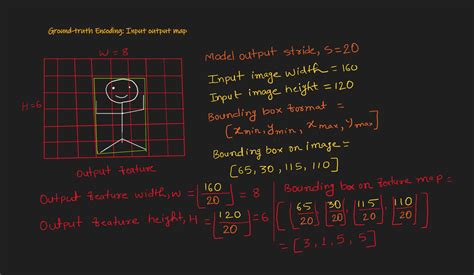 Ground-truth Encoding: Input output map
W = 8
H=6
Output feature
Model output stride, S=20
Input image width = 160
Input image height = 120
Bounding box format =
[xmin, ymin, xmax, ymax]
Bounding box on image =
[65, 30, 115, 110]
Output feature width, W = [160/20] = 8
Output feature height, H = [120/20] = 6
Bounding box on feature map =
[[65/20] [30/20], [115/20] [110/20]]
= [3, 1, 5, 5]